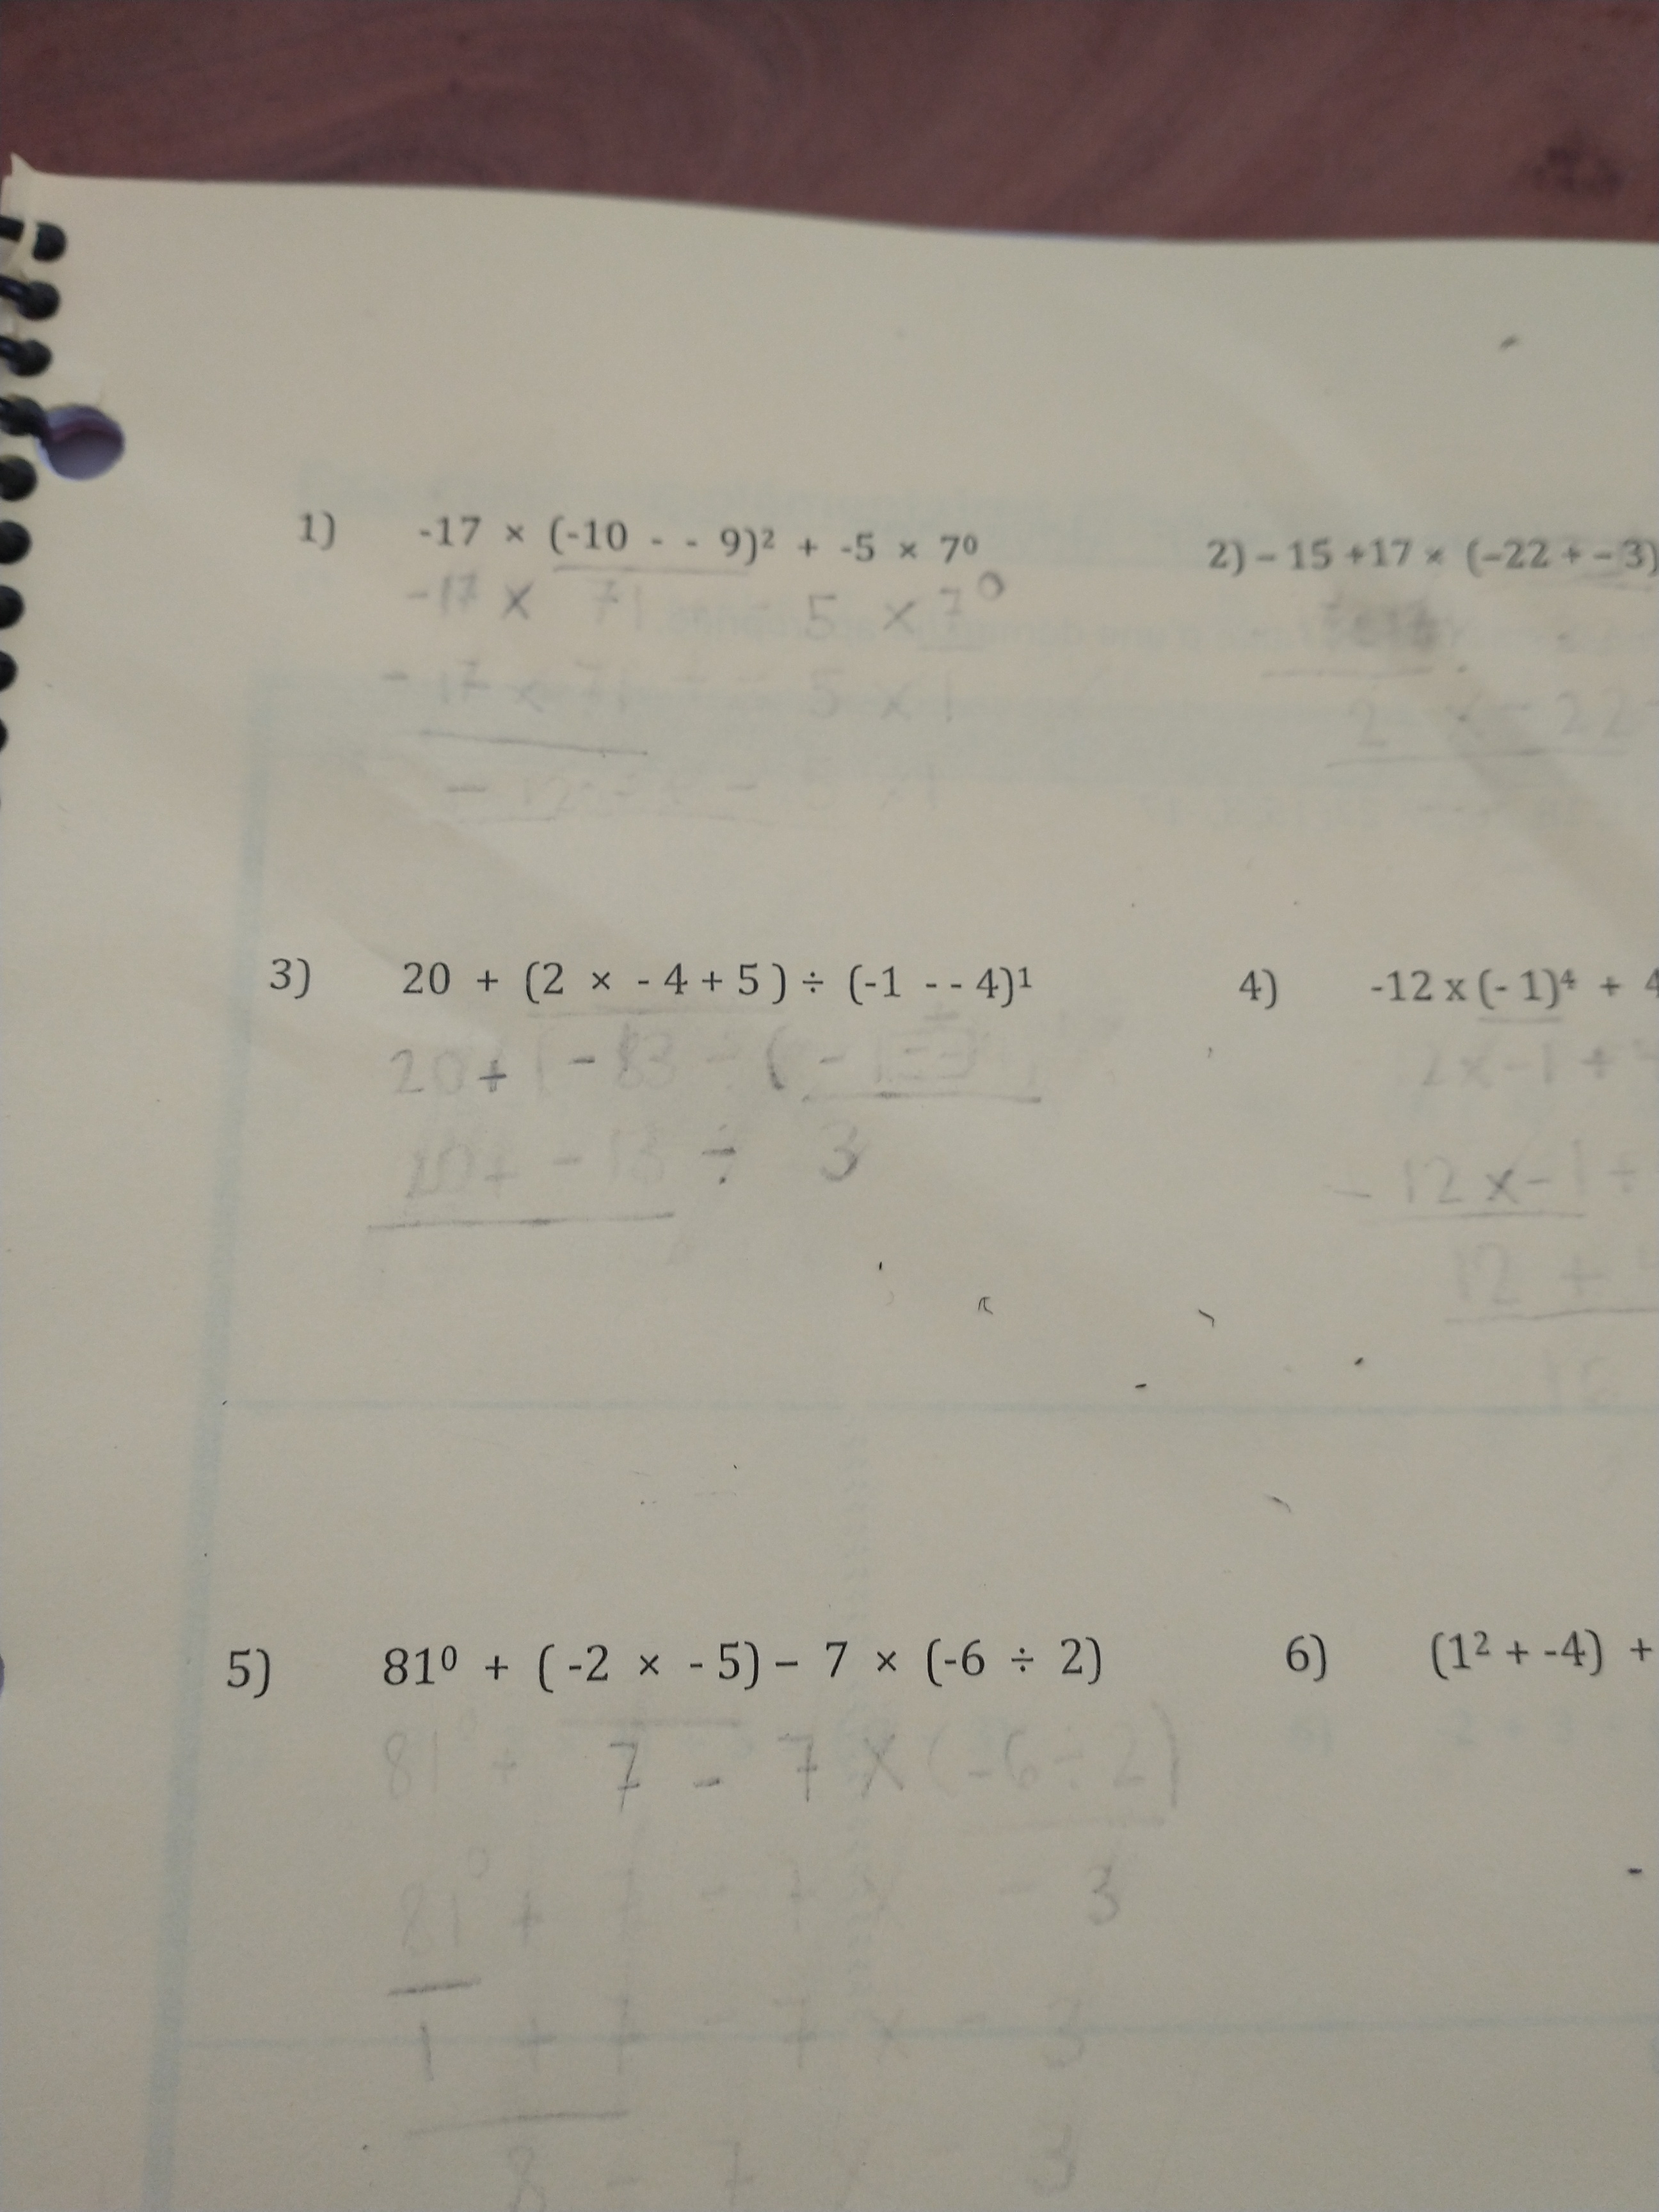 1) -17 × (-10 - - 9)² + -5 × 7⁰
-17 × 71 5 × 7⁰
- 17 × 71 + - 5 × 1
2) – 15 +17 × (–22 + – 3)
2 × - 22
3) 20 + (2 × - 4 + 5 ) ÷ (-1 - - 4)¹
20 +
÷ 3
4) -12 x (- 1)⁴ + 4
12 x -1 +
- 12 x - 1 +
12 +
5) 81⁰ + ( -2 × - 5) – 7 × (-6 ÷ 2)
81⁰ + 7 - 7 × (-6 ÷ 2)
81⁰ + 7 - 7 × - 3
1 + 7 - 7 × - 3
8 - 7 × - 3
6) (1² + -4) +